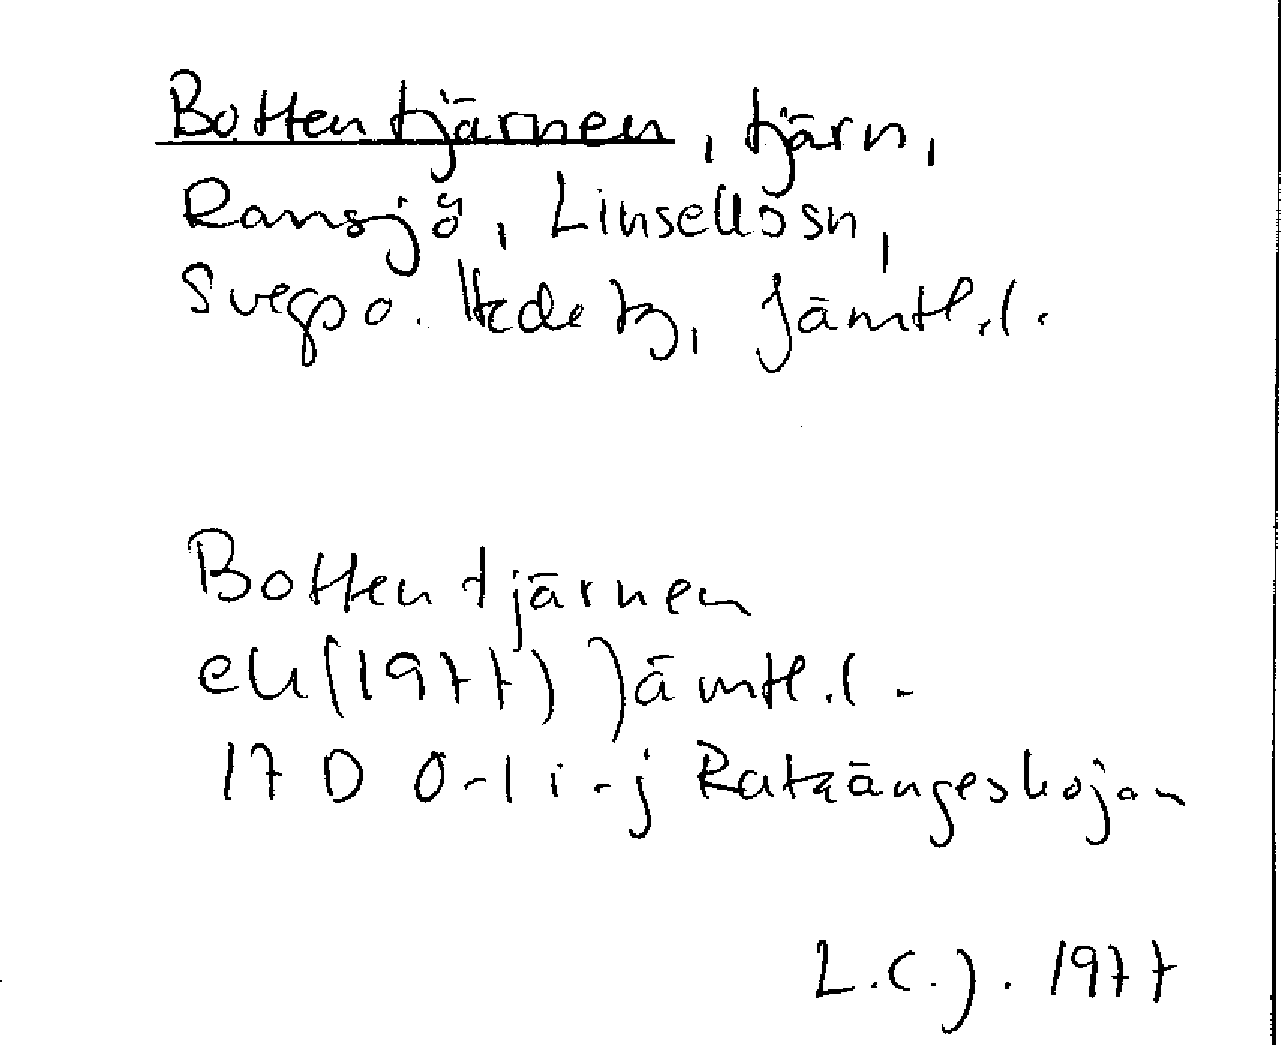 Bottentjärnen, tjärn,
Ransjö, Linsellösn,
Svegs po. Hede tg, Jämtl.l.
Bottentjärnen
ek (1977) Jämtl.l.
17 D 0-1 i-j Rataängeskojan
L.C.J. 1977